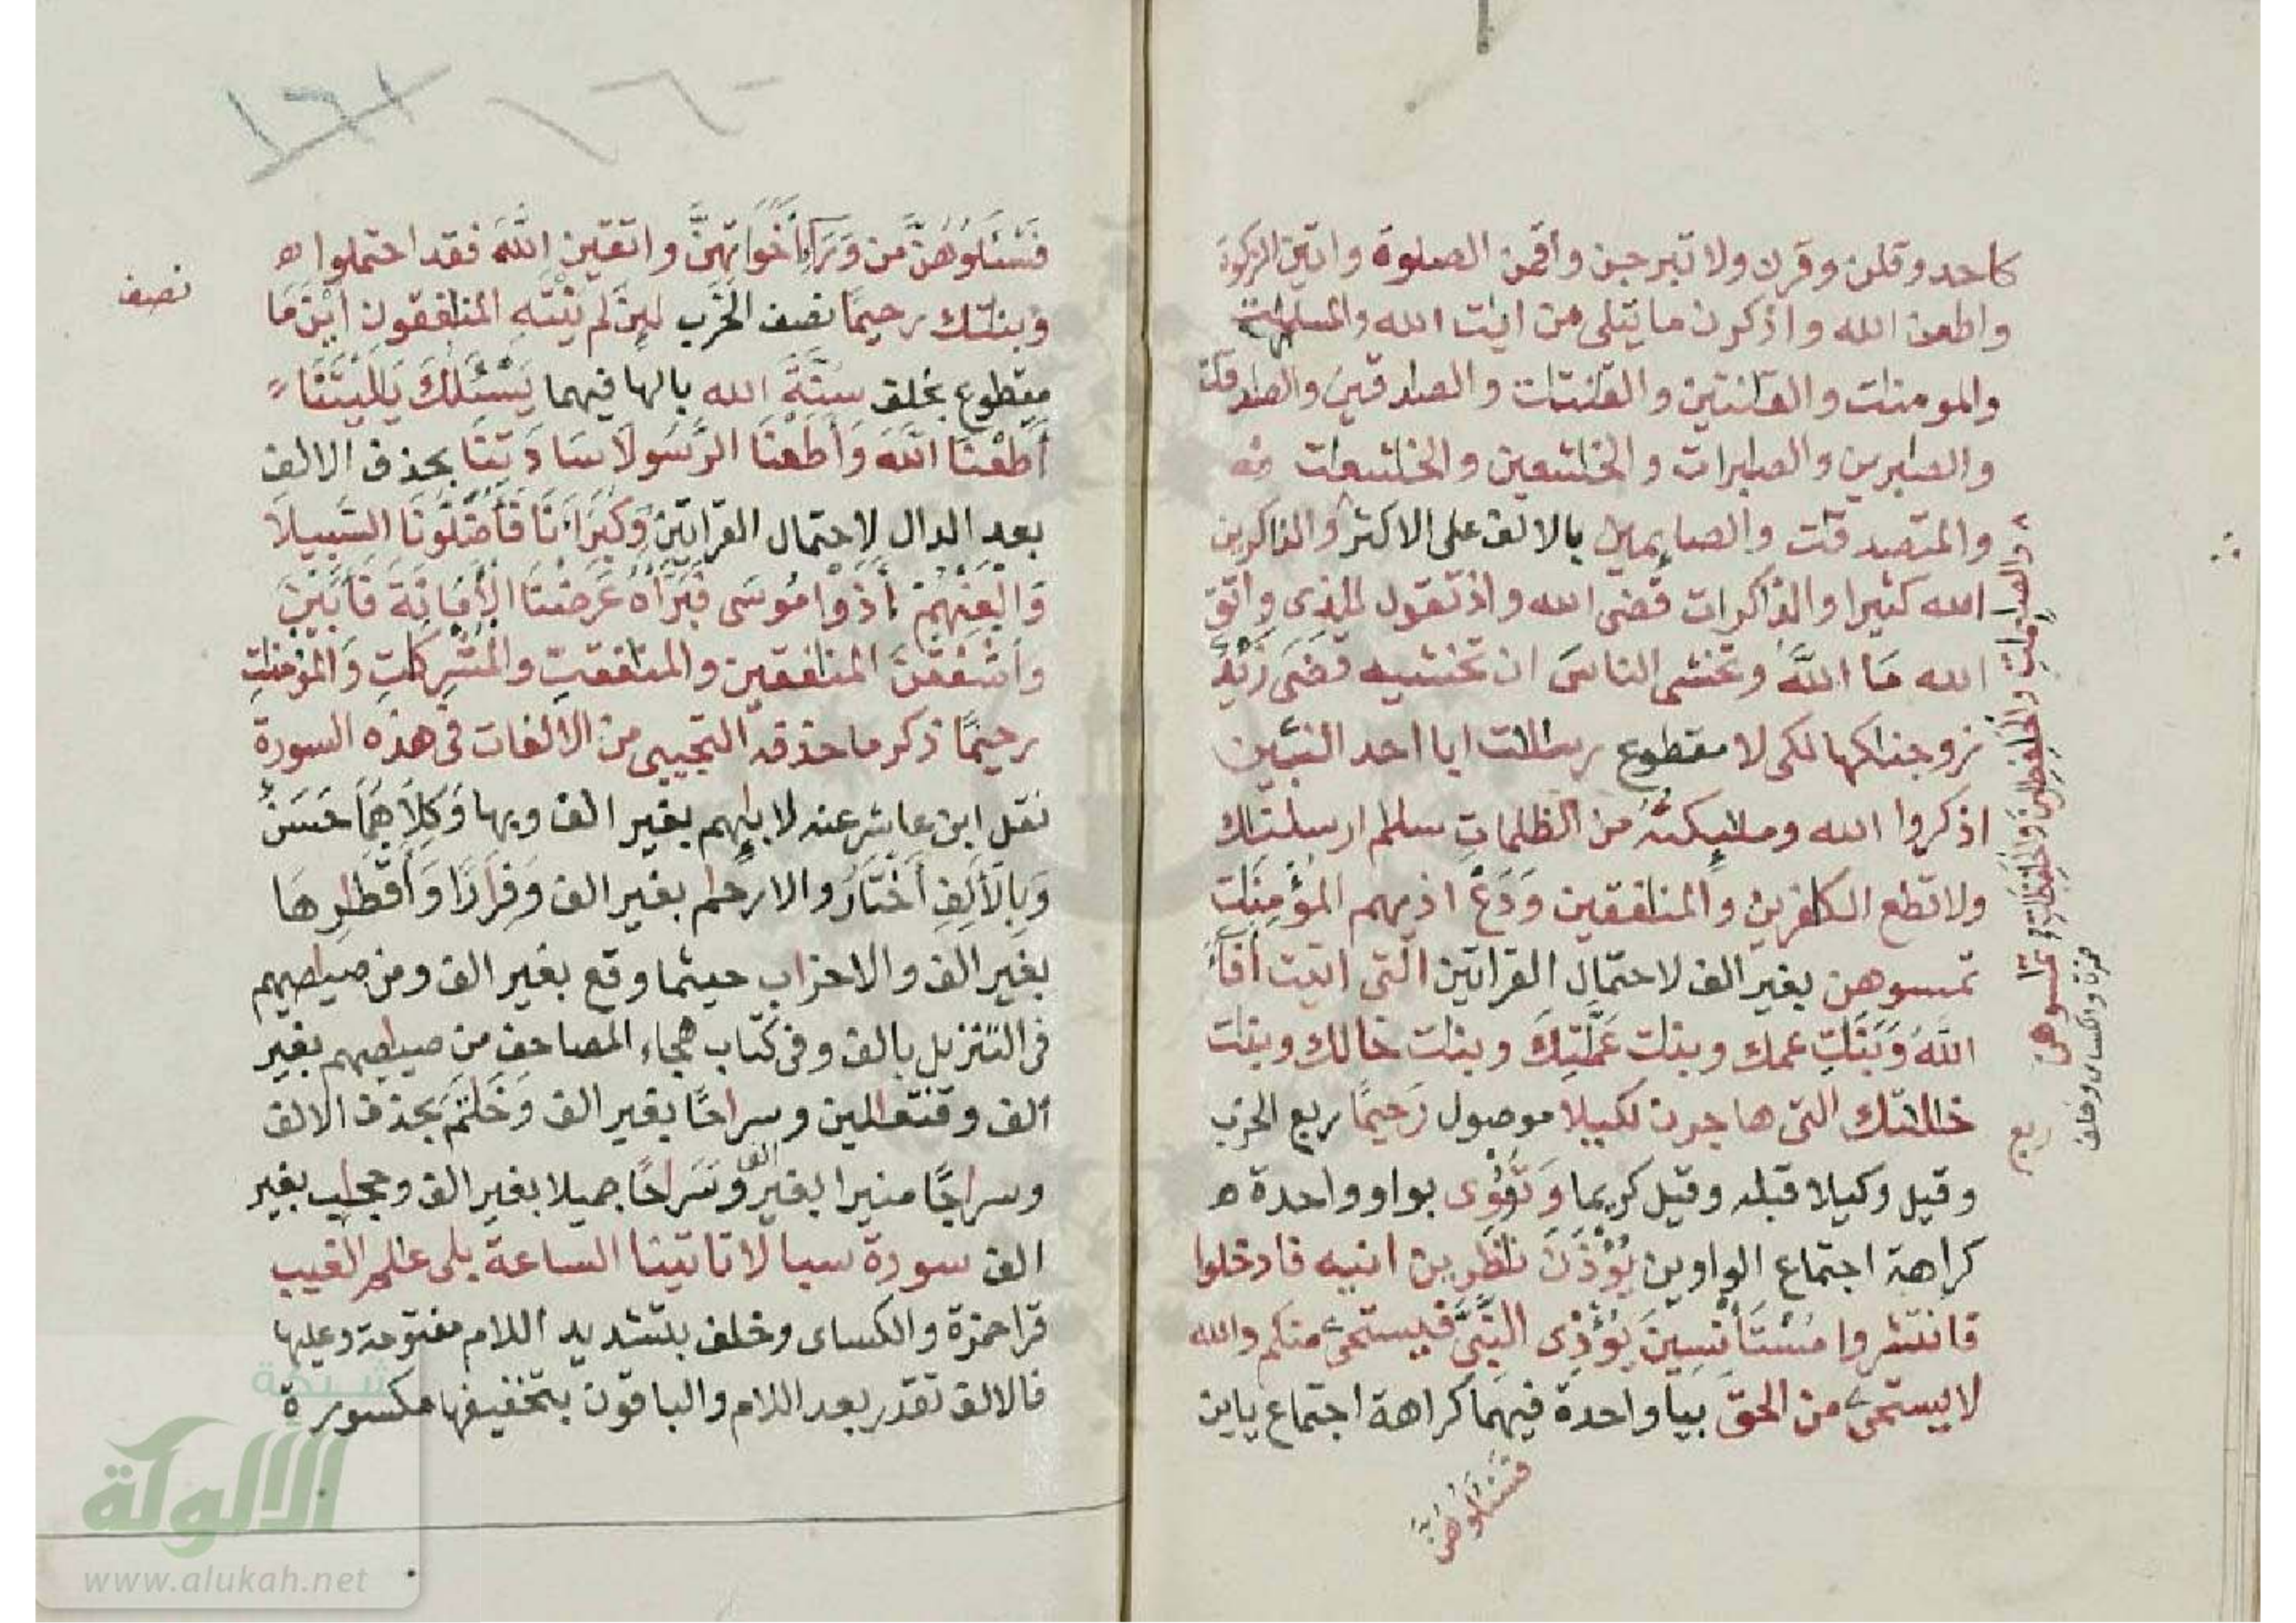 كاحد وقلن وقرن ولا تبرجن واقمن الصلوة واتين الزكوة
واطعن الله واذكرن ما يتلى من ايت الله والمسلمت
والمومنات والقانتين والقنتات والصدقين والصدقت
والصبرين والصبرات والخشعين والخشعت
والمتصدقت والصايمين بالالف على الاكثر والذاكرين
الله كثيرا والذاكرات قضى الله واذ تقول للذى واتق
الله مَا اللَّهُ وتخشى الناسَ ان تخشيه قَضَى زَيْدٌ
زوجنكها لكى لا مقطوع رسالات ابا احد النبين
اذكروا الله ومليكته من الظلمات سلم ارسلنك
ولا تطع الكفرين والمنفقين وَدَعْ اذيهم المؤمنت
تمسوهن بغير الف لاحتمال القراتين التى اتيت أفآء
اللهُ وَبَنت عمك وبنت عَمَّتِكَ وبنت خالك وبنت
خالتك التى هاجرن لكيلا موصول رَحيمًا ربع الحزب
وقيل وكيلا قبله وقيل كريما وَتُؤْوى بواو واحدة ه
كراهة اجتماع الواوين يُؤْذَنَ نظرين انيه فادخلوا
فانتشروا مُسْتَأنسينَ يُؤْذِى النَّبِىَّ فيستحى منكم والله
لا يستحى من الحق بيا واحدة فيهما كراهة اجتماع ياين
فَسْئَلُوهُنَّ
والصيمت والحفظين والحفظت
تمسوهن
حمزة والكساى وخلف
ربع
١٦٠
١٦١
فَسْئَلُوهُنَّ من وَرَآءِ أَخَوَاتِهِنَّ واتقين اللهَ فقد احتملوا ه
وبنتك رحيمًا نصف الحزب لَئِن لَّمْ يَنْتَهِ المنفقون أَيْنَ مَا
مقطوع بخلف سُنَّةَ الله بالها فيهما يَسْئَلُكَ يَلَيْتَنَا
أَطَعْنَا اللَّهَ وَأَطَعْنَا الرَّسُولَا سَادَتَنَا بحذف الالف
بعد الدال لاحتمال القراتين وَكُبَرَآءَنَا فَأَضَلُّونَا السَّبِيلَا
وَالْعَنْهُمْ آذَوْا مُوسَى فَبَرَّأَهُ عَرَضْنَا الأَمَانَةَ فَأَبَيْنَ
وأشفقنَ المنفقين والمنفقت والمشركت وَالمُؤمنت
رحيمًا ذكر ما حذفه التجيبى من الالفات فى هذه السورة
نقل ابن عاشر عنه لابايهم بغير الف وبها وَكِلَاهُمَا حَسَنٌ
وَبِالأَلِفِ أَخْتَارُ والارحام بغير الف وَفِرَارًا وَأَقْطَارِهَا
بغير الف والاحزاب حيثما وقع بغير الف ومن صياصيهم
فى التنزيل بالف وفى كتاب هجاء المصاحف من صياصيهم بغير
الف وفتعالين وسراحًا بغير الف وَخَاتَمَ بحذف الالف
وسراجًا منيرا بغير الف وَسَرَاحًا جميلا بغير الف وحجاب بغير
الف سورة سبا لا تاتينا الساعة بلى علم الغيب
قرا حمزة والكساى وخلف بتشديد اللام مفتوحة وعليها
فالالف تقدر بعد اللام والباقون بتخفيفها مكسورة
نصف
شبكة
الألوكة
www.alukah.net